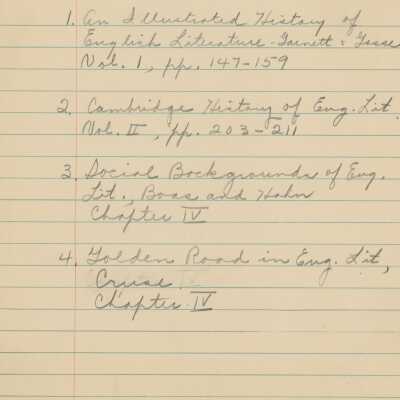 1. An Illustrated History of
English Literature - Garnett & Gosse
Vol. 1, pp. 147-159
2. Cambridge History of Eng. Lit.
Vol. II, pp. 203-211
3. Social Backgrounds of Eng.
Lit., Boas and Hahn
Chapter IV
4. Golden Road in Eng. Lit,
Cruse
Chapter IV